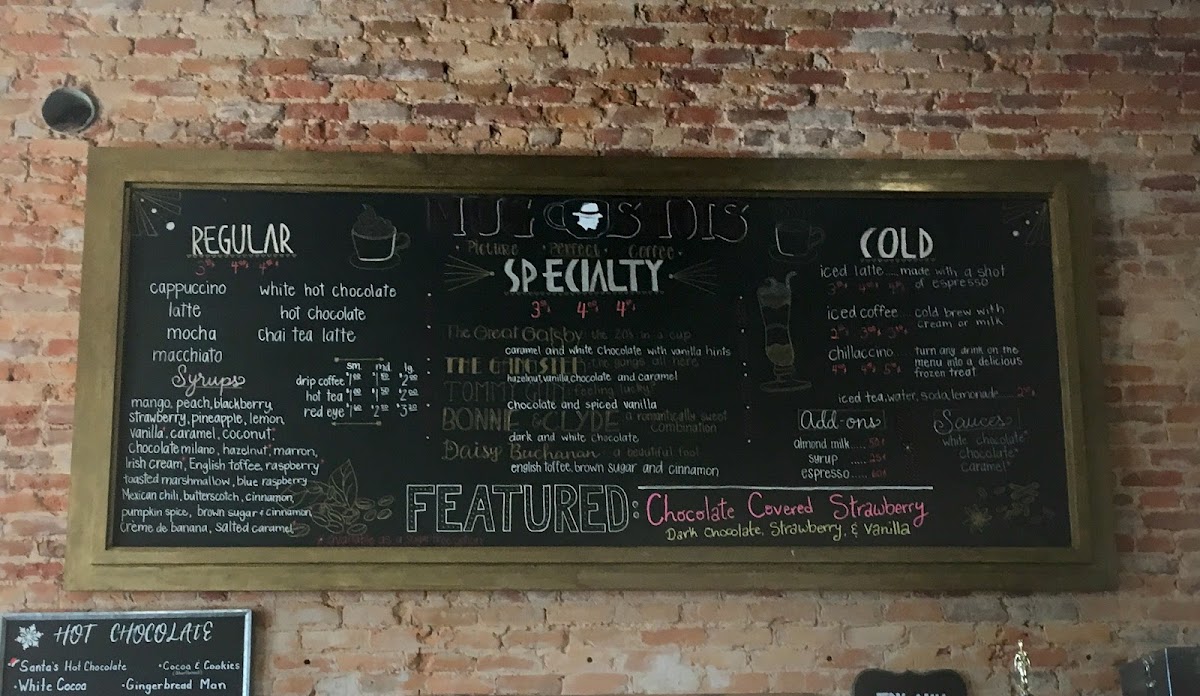 Picture Perfect Coffee
REGULAR
cappuccino
latte
mocha
macchiato
white hot chocolate
hot chocolate
chai tea latte
Syrups
mango, peach, blackberry,
strawberry, pineapple, lemon,
vanilla*, caramel, coconut,
chocolate milano, hazelnut*, marron,
Irish cream*, English toffee, raspberry*
toasted marshmallow, blue raspberry
Mexican chili, butterscotch, cinnamon,
pumpkin spice, brown sugar & cinnamon,
Crème de banana, salted caramel*
sm. md. lg.
drip coffee
hot tea
red eye
SPECIALTY
The Great Gatsby the 20s in a cup
caramel and white chocolate with vanilla hints
THE GANGSTER the gangs all here
hazelnut, vanilla, chocolate and caramel
TOMMY feeling lucky
chocolate and spiced vanilla
BONNIE & CLYDE a romantically sweet combination
dark and white chocolate
Daisy Buchanan a beautiful fool
english toffee, brown sugar and cinnamon
COLD
iced latte.... made with a shot
of espresso
iced coffee.. cold brew with
cream or milk
chillaccino.... turn any drink on the
menu into a delicious
frozen treat
iced tea, water, soda, lemonade
Add-ons
almond milk.... 50¢
syrup ..... 25¢
espresso..... 60¢
Sauces
white chocolate*
chocolate*
caramel*
FEATURED: Chocolate Covered Strawberry
Dark Chocolate, Strawberry, & Vanilla
* available as a sugar free option
HOT CHOCOLATE
Santa's Hot Chocolate
• White Cocoa
• Cocoa & Cookies
• Gingerbread Man